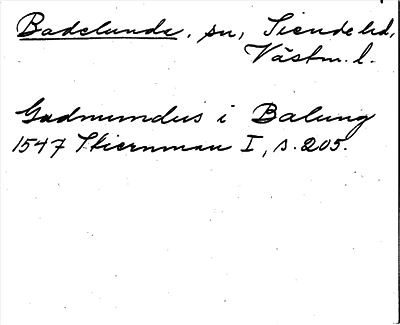 Badelunda, sn, Siende hd,
Västm. l.
Gudmundus i Balung
1547 Stiernman I, s. 205.